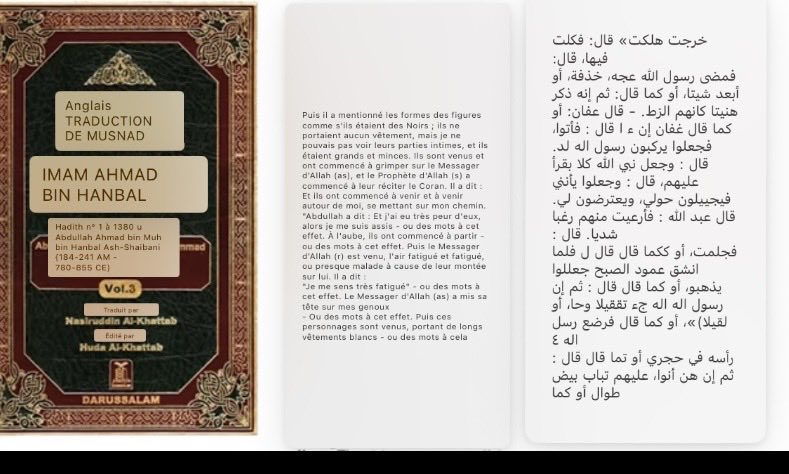 Anglais
TRADUCTION
DE MUSNAD
IMAM AHMAD
BIN HANBAL
Hadith n° 1 à 1380 u
Abdullah Ahmad bin Muh
bin Hanbal Ash-Shaibani
(184-241 AM -
780-855 CE)
Vol.3
Traduit par
Nasiruddin Al-Khattab
Édité par
Huda Al-Khattab
DARUSSALAM
Puis il a mentionné les formes des figures
comme s'ils étaient des Noirs ; ils ne
portaient aucun vêtement, mais je ne
pouvais pas voir leurs parties intimes, et ils
étaient grands et minces. Ils sont venus et
ont commencé à grimper sur le Messager
d'Allah (as), et le Prophète d'Allah (s) a
commencé à leur réciter le Coran. Il a dit :
Et ils ont commencé à venir et à venir
autour de moi, se mettant sur mon chemin.
"Abdullah a dit : Et j'ai eu très peur d'eux,
alors je me suis assis - ou des mots à cet
effet. À l'aube, ils ont commencé à partir -
ou des mots à cet effet. Puis le Messager
d'Allah (r) est venu, l'air fatigué et fatigué,
ou presque malade à cause de leur montée
sur lui. Il a dit :
"Je me sens très fatigué" - ou des mots à
cet effet. Le Messager d'Allah (as) a mis sa
tête sur mes genoux
- Ou des mots à cet effet. Puis ces
personnages sont venus, portant de longs
vêtements blancs - ou des mots à cela
خرجت هلكت» قال: فكلت
فيها، قال:
فمضى رسول الله عجه، خذفة، أو
أبعد شيتا، أو كما قال: ثم إنه ذكر
هنيتا كانهم الزط. - قال عفان: أو
كما قال غفان إن ء ا قال : فأتوا،
فجعلوا يركبون رسول اله لد.
قال : وجعل نبي الله كلا بقرأ
عليهم، قال : وجعلوا يأنني
فيجييلون حولي، ويعترضون لي.
قال عبد الله : فأرعيت منهم رغبا
شديا. قال :
فجلمت، أو ككما قال قال ل فلما
انشق عمود الصبح جعللوا
يذهبو، أو كما قال قال : ثم إن
رسول اله اله جء تققيلا وحا، أو
لقيلا)»، أو كما قال فرضع رسل
اله ٤
رأسه في حجري أو تما قال قال :
ثم إن هن أنوا، عليهم تباب بيض
طوال أو كما